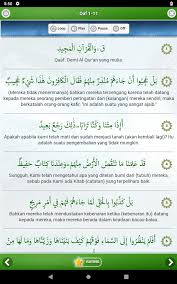 8:50
Qaf 1-11
Loop Play Pause Off
ق ۚ وَالْقُرْآنِ الْمَجِيدِ
Qaaf. Demi Al Qur'an yang mulia.
بَلْ عَجِبُوا أَن جَاءَهُم مُّنذِرٌ مِّنْهُمْ فَقَالَ الْكَافِرُونَ هَٰذَا شَيْءٌ عَجِيبٌ
(Mereka menolak menerimanya) bahkan mereka tercengang karena telah datang
kepada mereka seorang pemberi peringatan dari (kalangan) mereka sendiri, maka
berkatalah orang-orang kafir: "Ini adalah suatu yang sangat ajaib".
أَإِذَا مِتْنَا وَكُنَّا تُرَابًا ۖ ذَٰلِكَ رَجْعٌ بَعِيدٌ
Apakah apabila kami telah mati dan menjadi tanah (akan kembali lagi)?
itu adalah suatu pengembalian yang tidak mungkin.
قَدْ عَلِمْنَا مَا تَنقُصُ الْأَرْضُ مِنْهُمْ ۖ وَعِندَنَا كِتَابٌ حَفِيظٌ
Sungguh, Kami telah mengetahui apa yang dimakan bumi dari (tubuh)
mereka, sebab pada kami ada Kitab (catatan) yang terpelihara baik.
بَلْ كَذَّبُوا بِالْحَقِّ لَمَّا جَاءَهُمْ فَهُمْ فِي أَمْرٍ مَّرِيجٍ
Bahkan mereka telah mendustakan kebenaran ketika (kebenaran itu) datang
kepada mereka, maka mereka berada dalam keadaan kacau balau.
أَفَلَمْ يَنظُرُوا إِلَى السَّمَاءِ فَوْقَهُمْ كَيْفَ بَنَيْنَاهَا وَزَيَّنَّاهَا وَمَا لَهَا